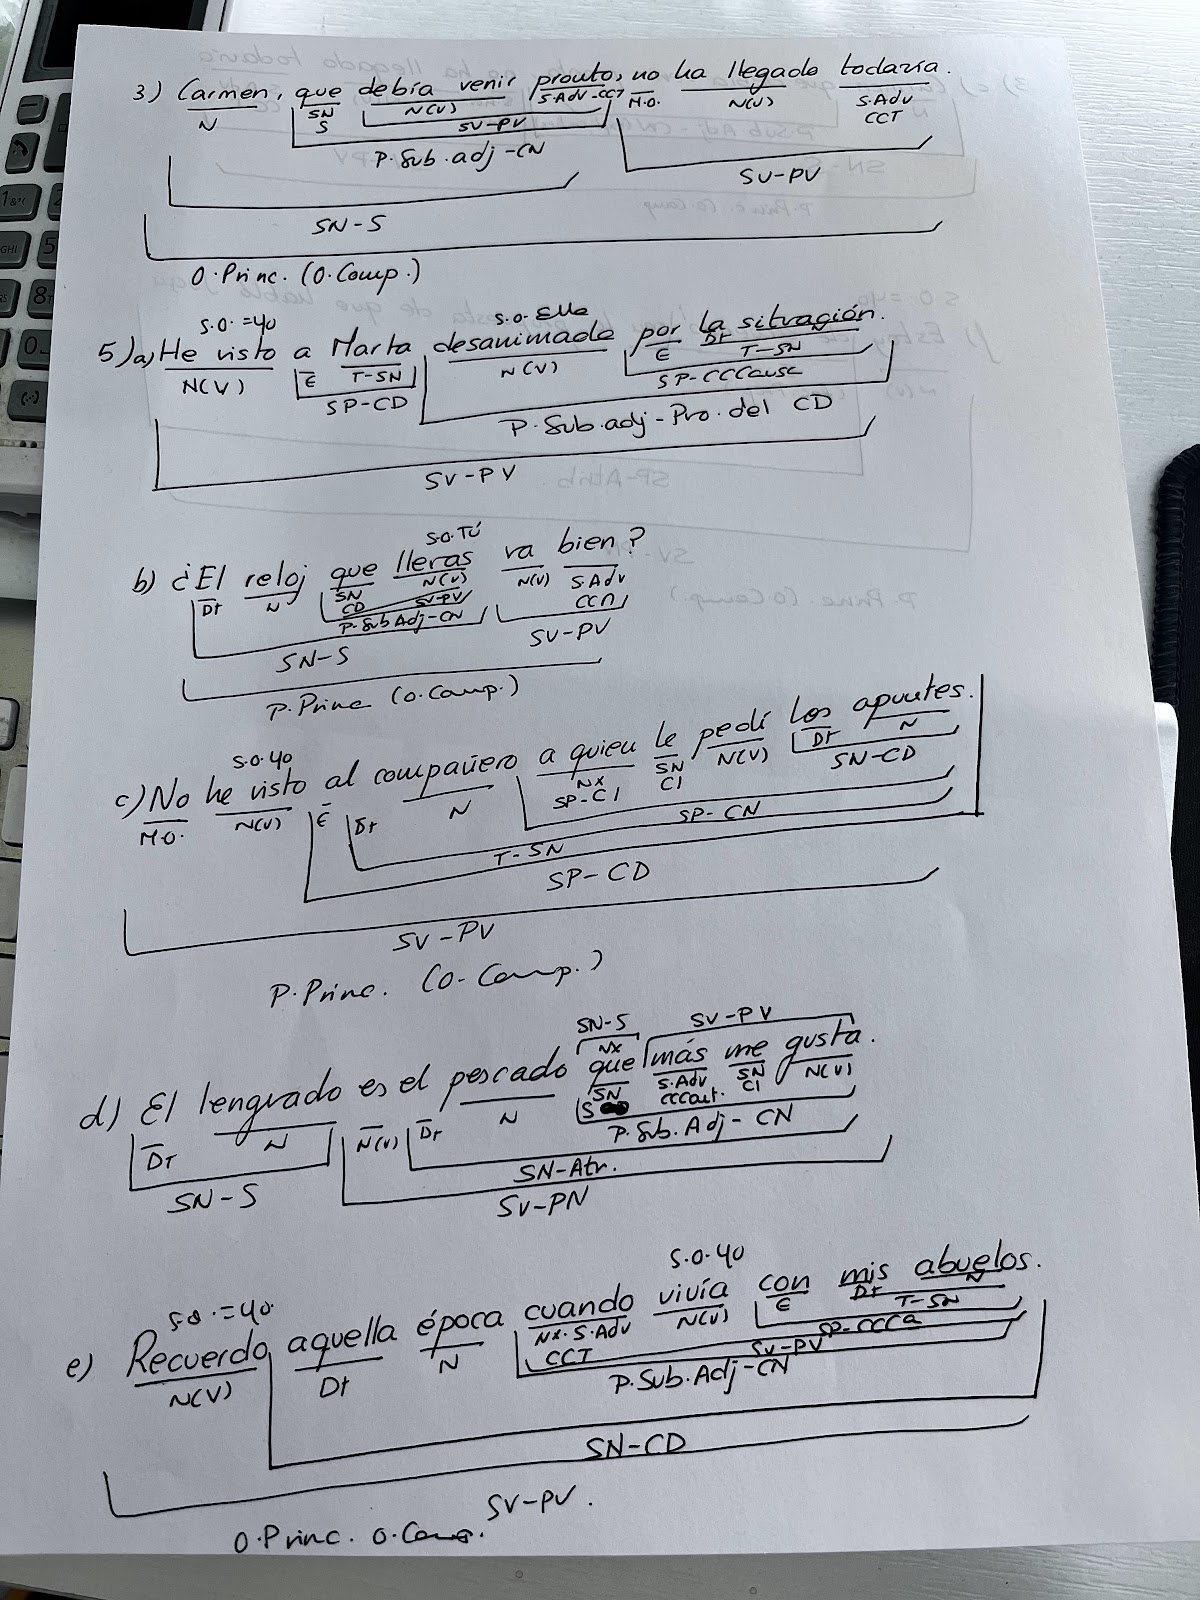 3) Carmen, que debía venir pronto, no ha llegado todavía.
N SN N(V) S.Adv-CCT M.O. N(V) S.Adv
S SV-PV CCT
P.Sub.adj-CN SV-PV
SN-S
O.Princ. (O.Comp.)
S.O.=YO S.O. Ella
5) a) He visto a Marta desanimada por la situación.
N(V) E T-SN N(V) E Dt T-SN
SP-CD SP-CCCausa
P.Sub.adj-Pro.del CD
SV-PV
S.O. TÚ
b) ¿El reloj que llevas va bien?
Dt N SN N(V) N(V) S.Adv
CD SV-PV CCM
P.SubAdj-CN SV-PV
SN-S
P.Princ (O.Comp.)
S.O. YO
c) No he visto al compañero a quien le pedí los apuntes.
M.O. N(V) E Dt N NX SN N(V) Dt N
SP-CI CI SN-CD
SP-CN
T-SN
SP-CD
SV-PV
P.Princ. (O.Comp.)
SN-S SV-PV
NX
d) El lenguado es el pescado que más me gusta.
Dt N N(V) Dt N SN S.Adv SN N(V)
S CCCant. CI
P.Sub.Adj-CN
SN-Atr.
SN-S SV-PN
S.O.=YO. S.O. YO
e) Recuerdo aquella época cuando vivía con mis abuelos.
N(V) Dt N NX.S.Adv N(V) E Dt N
CCT T-SN
SP-CCCa
SV-PV
P.Sub.Adj-CN
SN-CD
SV-PV.
O.Princ. O.Comp.